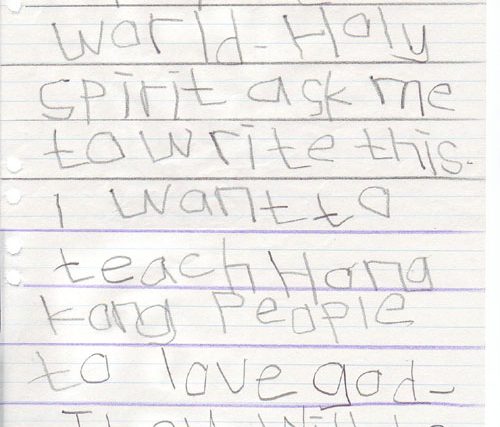 world- Holy
spirit ask me
to write this.
I want to
teach Hong
Kong People
to love god-